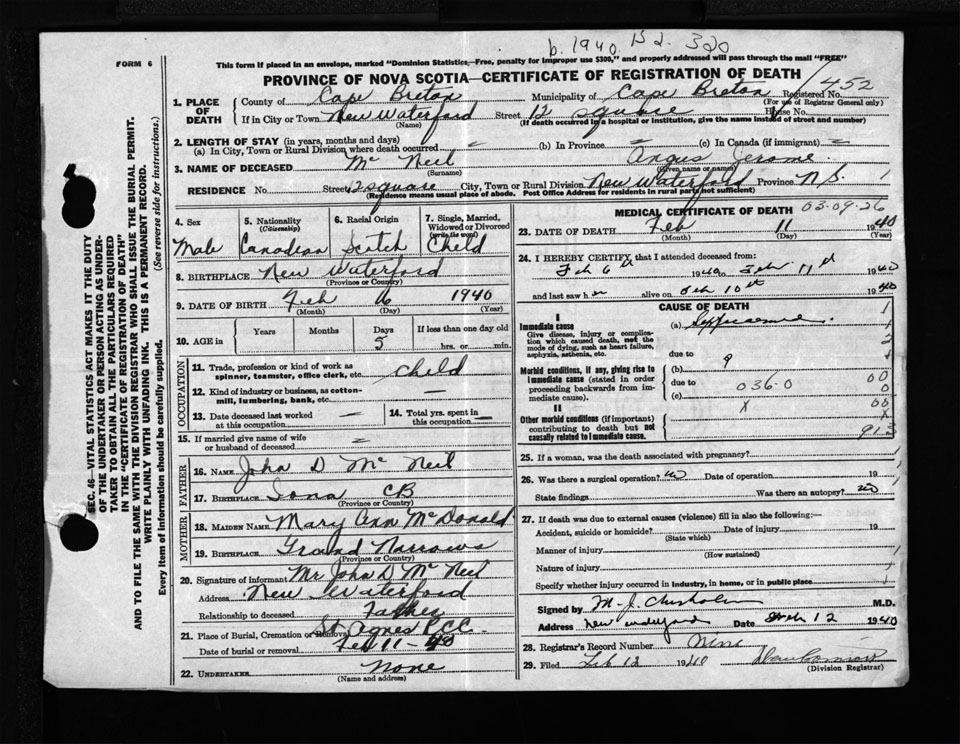 b. 1940. B 2. 320
FORM 6
This form if placed in an envelope, marked "Dominion Statistics—Free, penalty for improper use $300," and properly addressed will pass through the mail "FREE"
PROVINCE OF NOVA SCOTIA—CERTIFICATE OF REGISTRATION OF DEATH
1. PLACE OF DEATH County of Cape Breton Municipality of Cape Breton Registered No. 452
(For use of Registrar General only)
If in City or Town New Waterford Street 12 Square House No.
(Name) (If death occurred in a hospital or institution, give the name instead of street and number)
2. LENGTH OF STAY (in years, months and days)
(a) In City, Town or Rural Division where death occurred (b) In Province (c) In Canada (if immigrant)
3. NAME OF DECEASED Mc Neil Angus Jerome
(Surname) (Given name or names)
RESIDENCE No. Street 12 square City, Town or Rural Division New Waterford Province N.S.
(Residence means usual place of abode. Post Office Address for residents in rural parts not sufficient)
4. Sex Male
5. Nationality (Citizenship) Canadian
6. Racial Origin Scotch
7. Single, Married, Widowed or Divorced (write the word) Child
8. BIRTHPLACE New Waterford
(Province or Country)
9. DATE OF BIRTH Feb 6 1940
(Month) (Day) (Year)
10. AGE in Years Months Days If less than one day old
5 hrs. or min.
OCCUPATION
11. Trade, profession or kind of work as spinner, teamster, office clerk, etc. Child
12. Kind of industry or business, as cotton-mill, lumbering, bank, etc. —
13. Date deceased last worked at this occupation —
14. Total yrs. spent in this occupation —
15. If married give name of wife or husband of deceased
FATHER
16. NAME John D McNeil
17. BIRTHPLACE Iona CB
(Province or Country)
MOTHER
18. MAIDEN NAME Mary Ann McDonald
19. BIRTHPLACE Grand Narrows
(Province or Country)
20. Signature of informant Mr John D McNeil
Address New Waterford
Relationship to deceased Father
21. Place of Burial, Cremation or Removal St Agnes R.C.C.
Date of burial or removal Feb 11-40
22. UNDERTAKER None
(Name and address)
MEDICAL CERTIFICATE OF DEATH 03-09-26
23. DATE OF DEATH Feb 11 1940
(Month) (Day) (Year)
24. I HEREBY CERTIFY that I attended deceased from:
Feb 6th 1940 to Feb 11th 1940
and last saw h alive on Feb 10th 1940
CAUSE OF DEATH
I
Immediate cause
Give disease, injury or complication which caused death, not the mode of dying, such as heart failure, asphyxia, asthenia, etc.
(a)
due to
Morbid conditions, if any, giving rise to immediate cause (stated in order proceeding backwards from immediate cause).
(b) 9
due to 036.0
(c)
II
Other morbid conditions (if important) contributing to death but not causally related to immediate cause.
X
25. If a woman, was the death associated with pregnancy?
26. Was there a surgical operation? no Date of operation 19
State findings Was there an autopsy? no
27. If death was due to external causes (violence) fill in also the following:—
Accident, suicide or homicide? Date of injury 19
(State which)
Manner of injury
(How sustained)
Nature of injury
Specify whether injury occurred in industry, in home, or in public place
Signed by M. J. Chisholm M.D.
Address New Waterford Date Feb 12 1940
28. Registrar's Record Number Nine
29. Filed Feb 12 1940
(Division Registrar)
SEC. 46—VITAL STATISTICS ACT MAKES IT THE DUTY
OF THE UNDERTAKER OR PERSON ACTING AS UNDER-
TAKER TO OBTAIN ALL THE PARTICULARS REQUIRED
IN THE "CERTIFICATE OF REGISTRATION OF DEATH"
AND TO FILE THE SAME WITH THE DIVISION REGISTRAR WHO SHALL ISSUE THE BURIAL PERMIT.
WRITE PLAINLY WITH UNFADING INK. THIS IS A PERMANENT RECORD.
Every item of information should be carefully supplied. (See reverse side for instructions.)